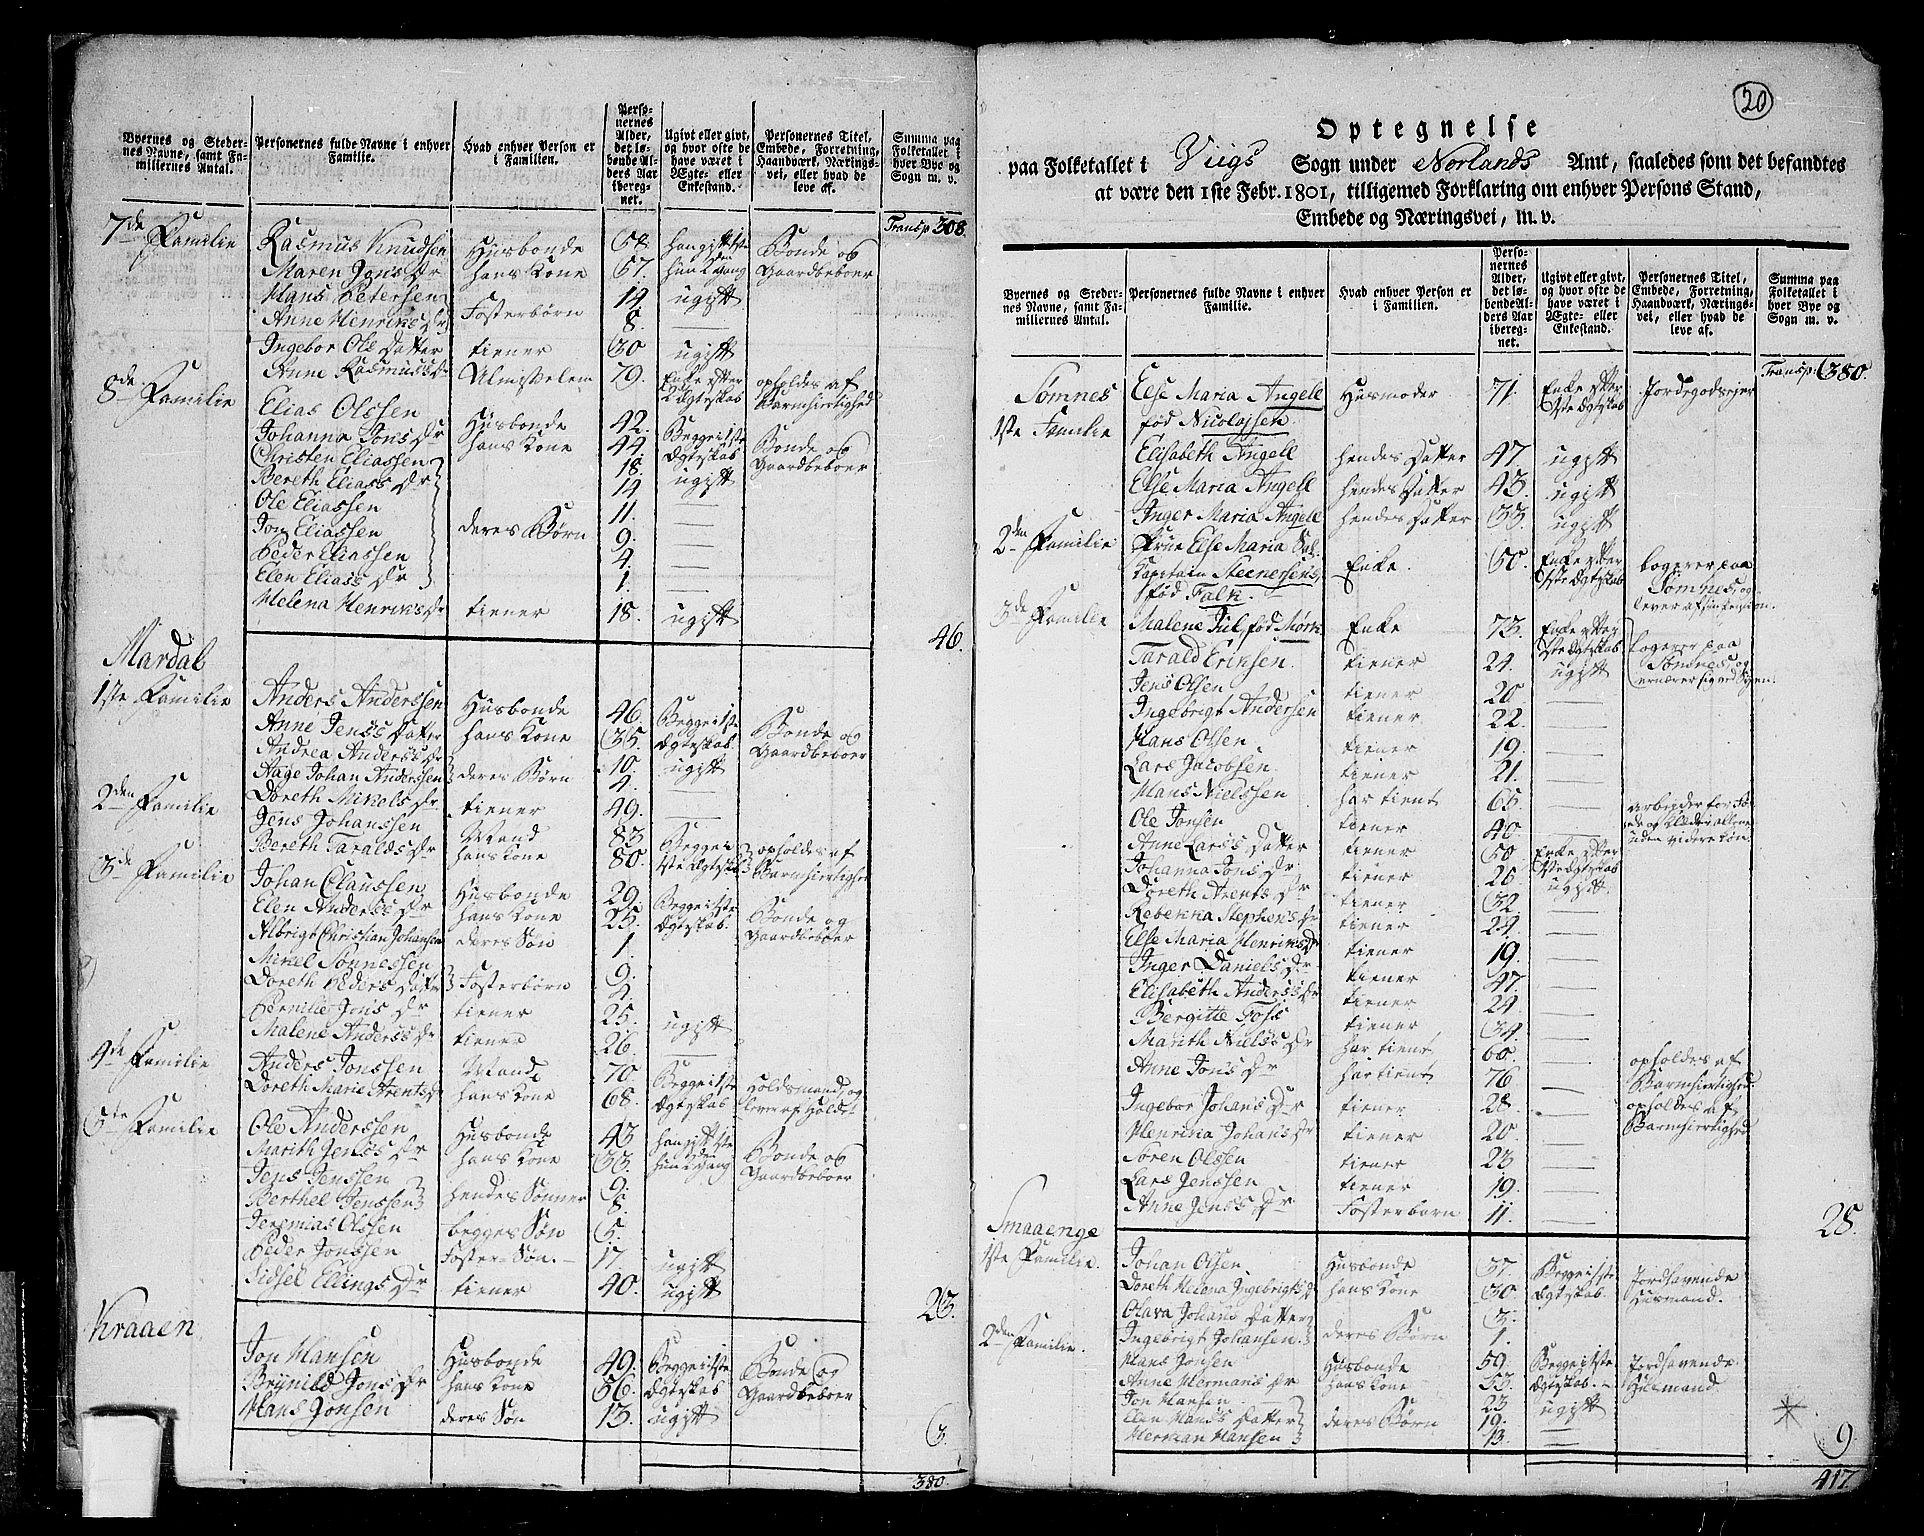 Byernes og Stedernes Navne, samt Familiernes Antal.
Personernes fulde Navne i enhver Familie.
Hvad enhver Person er i Familien.
Personernes Alder, det løbende Alders Aar iberegnet.
Ugivt eller givt, og hvor ofte de have været i Ægte- eller Enkestand.
Personernes Titel, Embede, Forretning, Haandværk, Næringsvei, eller hvad de leve af.
Summa paa Folketallet i hver Bye og Sogn m. v.
Transp 308.
7de Familie
Rasmus Knudsen Husbonde 58 Bonde og
Maren Jons Dr hans Kone 57. Gaardbeboer
Hans Petersen 14 ugift
Anne Hinriks Dr Fosterbørn 8.
Ingebor Ols Datter tiener 30 ugift
Anne Rasmus Dr Almisselem 79. Enke efter opholdes af
2 Ægteskab Barmhiertighed
8de Familie
Elias Olssen Husbonde 42. Begge i 1ste Bonde og
Johanna Jons Dr hans Kone 44. Ægteskab Gaardbeboer
Christen Eliassen 18. ugift
Bereth Elias Dr 14
Ole Eliassen 11.
Jon Eliassen deres Børn 9.
Peder Eliassen 4.
Elen Elias Dr 1.
Helena Henriks Dr tiener 18. ugift
46.
Mardal
1ste Familie
Anders Anderssen Husbonde 46. Begge i 1ste Bonde og
Anne Jens Datter hans Kone 35. Ægteskab. Gaardbeboer
Andrea Anders Dr 10. ugift
Aage Johan Anderssen deres Børn 4.
Doreth Mikels Dr tiener 49.
2den Familie
Jens Johanssen Mand 83 Begge i opholdes af
Bereth Taralds Dr hans Kone 80. 1ste Ægteskab Barmhiertighed
3de Familie
Johan Claussen Husbonde 29. Begge i 1ste Bonde og
Elen Anders Dr hans Kone 25. Ægteskab. Gaardbeboer
Albrigt Christian Johansen deres Søn 1.
Mikel Sonnessen 9.
Doreth Peders Datter Fosterbørn 2.
Pernille Jons Dr tiener 25. ugift
Malene Anders Dr tiener 26.
4de Familie
Anders Jonssen Mand 70. Begge i 1ste
Doreth Marie Arents Dr hans Kone 68. Ægteskab lever af Hold
5te Familie
Ole Anderssen Husbonde 43 Bonde og
Marith Jens Dr hans Kone 33. Gaardbeboer
Jens Jenssen 9.
Berthel Jenssen hendes Sønner 8.
Jeremias Olssen begges Søn 5.
Peder Jonssen Foster-Søn. 17 ugift
Sidsel Ellings Dr tiener 40. ugift
23.
Kraaen
Jon Hansen Husbonde 49. Begge i 1ste Bonde og
Brynild Jons Dr hans Kone 56. Ægteskab Gaardbeboer
Hans Jonsen deres Søn 13. ugift
3.
380.
20
Optegnelse
paa Folketallet i Viigs Sogn under Norlands Amt, saaledes som det befandtes
at være den 1ste Febr. 1801, tilligemed Forklaring om enhver Persons Stand,
Embede og Næringsvei, m. v.
Byernes og Stedernes Navne, samt Familiernes Antal.
Personernes fulde Navne i enhver Familie.
Hvad enhver Person er i Familien.
Personernes Alder, det løbende Alders Aar iberegnet.
Ugivt eller givt, og hvor ofte de have været i Ægte- eller Enkestand.
Personernes Titel, Embede, Forretning, Haandværk, Næringsvei, eller hvad de leve af.
Summa paa Folketallet i hver Bye og Sogn m. v.
Transp: 380.
Sømnes
1ste Familie
Else Maria Angell Husmoder 71. Enke efter Jordegodseier
fød Nicolajsen. 1ste Ægteskab
Elisabeth Angell hendes Datter 47 ugift
Else Maria Angell hendes Datter 43. ugift
Inger Maria Angell hendes Datter 33. ugift
2den Familie
Frue Else Maria Sal. Enke. 50. Enke efter logerer paa
Kapitain Steenersens, 1ste Ægteskab Sømnes, og
fød Falk. lever af sin Pension.
3de Familie
Malene Jul, fød Mørk Enke 73. Enke efter logerer paa
1ste Ægteskab Sømnes, og
Tarald Eriksen. tiener 24. ugift
Jens Olsen tiener 20
Ingebrigt Andersen tiener 22
Hans Olsen tiener 19.
Lars Jacobsen tiener 21.
Hans Nielssen har tient 65
Ole Jonsen tiener 40
Anne Lars Datter tiener 50. Enke efter
Johanna Jons Dr tiener 20 ugift
Doreth Arents Dr tiener 32
Rebekka Stephens Dr tiener 24
Else Maria Henriks Dr tiener 19.
Inger Daniels Dr tiener 47.
Elisabeth Anders Dr tiener 24
Bergitte Foss tiener 34
Marith Niels Dr har tient 60 opholdes af
Barmhiertighed
Anne Jons Dr har tient 76 opholdes af
Barmhiertighed
Ingebor Johans Dr tiener 28
Henrikia Johans Dr tiener 20
Søren Olssen tiener 23
Lars Jenssen tiener 19.
Anne Jens Dr Fosterbarn 11.
28.
Smaaenge
1ste Familie.
Johan Olsen Husbonde 37. Begge i 1ste Jordløvende
Doreth Helena Ingebrigts Dr hans Kone 30. Ægteskab. Huusmand.
Olava Johans Datter 3.
Ingebrigt Johansen. deres Børn 1.
2den Familie.
Hans Jonsen Husbonde 59. Begge i 1ste
Anne Hermans Dr hans Kone 53 Ægteskab. Huusmand.
Jon Hansen 23 ugift
Elen Hans Datter deres Børn 19.
Herman Hansen 13.
9
417